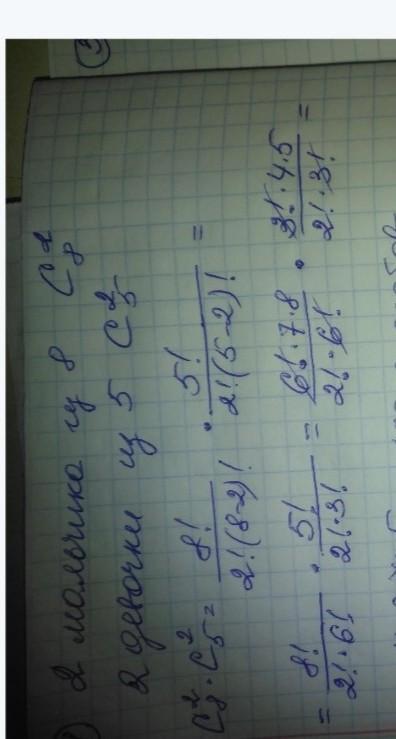 2 мальчика из 8 C₈²
2 девочки из 5 C₅²
C₈² · C₅² = 8!/2!(8-2)! · 5!/2!(5-2)! =
= 8!/2!·6! · 5!/2!·3! = 6!·7·8/2!·6! · 3!·4·5/2!·3! =